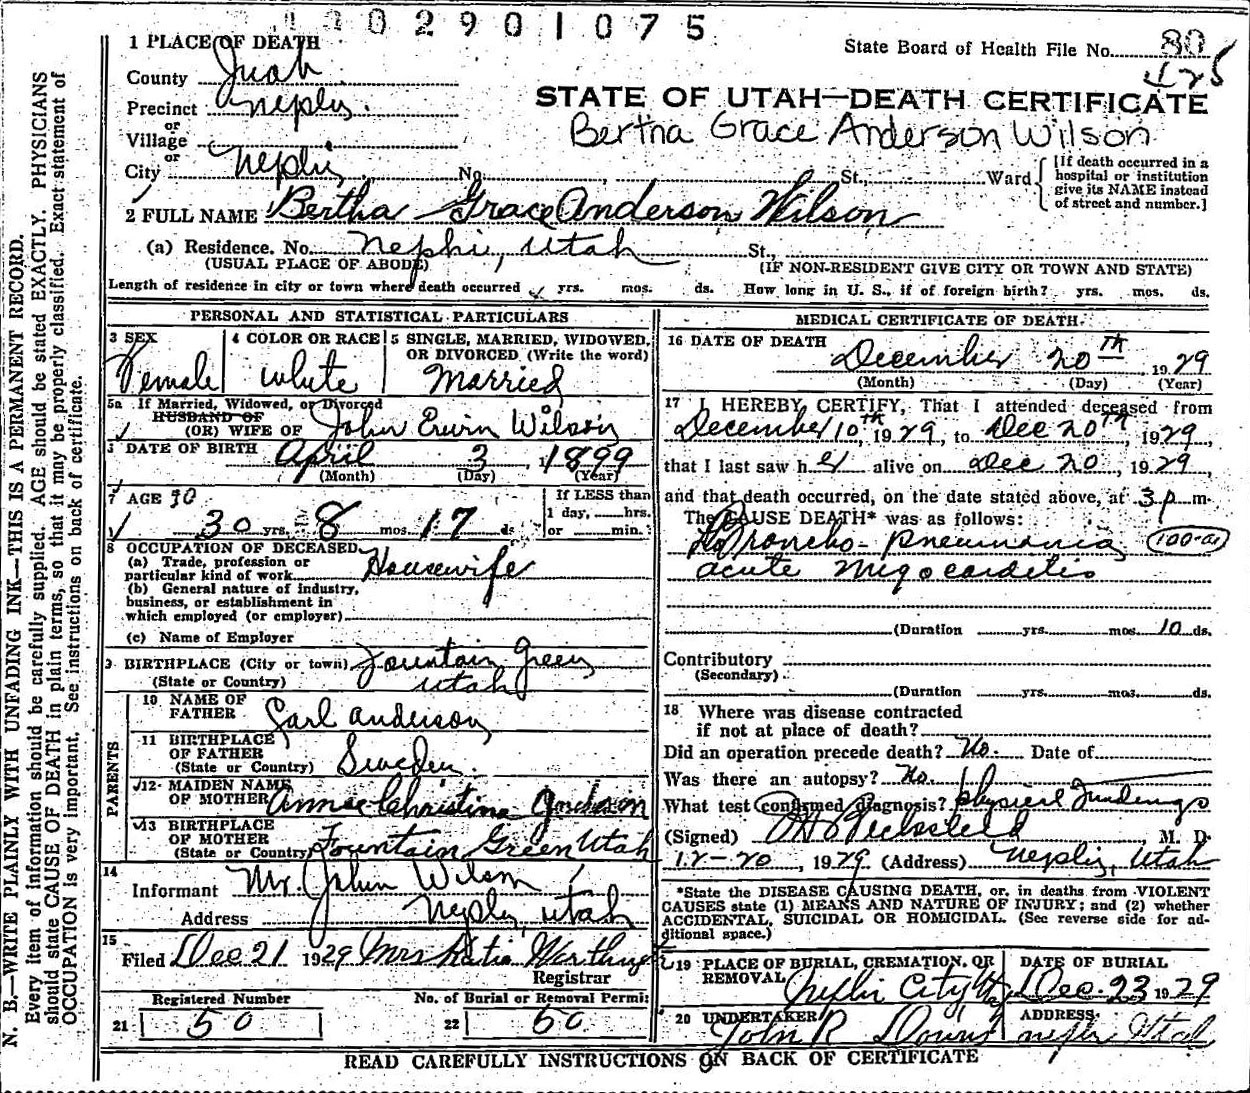 02901075
State Board of Health File No. 80
425
1 PLACE OF DEATH
County Juab
Precinct Nephi.
or
Village
or
City Nephi, No. , St., Ward
[If death occurred in a hospital or institution give its NAME instead of street and number.]
STATE OF UTAH—DEATH CERTIFICATE
Bertha Grace Anderson Wilson
2 FULL NAME Bertha Grace Anderson Wilson
(a) Residence. No. Nephi, Utah St.,
(USUAL PLACE OF ABODE) (IF NON-RESIDENT GIVE CITY OR TOWN AND STATE)
Length of residence in city or town where death occurred yrs. mos. ds. How long in U. S., if of foreign birth? yrs. mos. ds.
PERSONAL AND STATISTICAL PARTICULARS
3 SEX 4 COLOR OR RACE 5 SINGLE, MARRIED, WIDOWED, OR DIVORCED (Write the word)
Female White Married
5a If Married, Widowed, or Divorced
HUSBAND OF
(OR) WIFE OF John Erwin Wilson
DATE OF BIRTH April 3, 1899
(Month) (Day) (Year)
7 AGE 30
30 yrs. 8 mos. 17 ds.
If LESS than
1 day, hrs.
or min.
8 OCCUPATION OF DECEASED
(a) Trade, profession or
particular kind of work Housewife
(b) General nature of industry,
business, or establishment in
which employed (or employer)
(c) Name of Employer
9 BIRTHPLACE (City or town) Fountain Green
(State or Country) Utah
PARENTS
10 NAME OF
FATHER Carl Anderson
11 BIRTHPLACE
OF FATHER
(State or Country) Sweden.
12 MAIDEN NAME
OF MOTHER Annie Christina
13 BIRTHPLACE
OF MOTHER
(State or Country) Fountain Green Utah
14
Informant Mr. John Wilson
Address Nephi, Utah
15
Filed Dec 21 1929 Mrs Katie
Registrar
Registered Number No. of Burial or Removal Permit
21 50 22 50
MEDICAL CERTIFICATE OF DEATH.
16 DATE OF DEATH
December 20TH 1929
(Month) (Day) (Year)
17 I HEREBY CERTIFY, That I attended deceased from
December 10th, 1929, to Dec 20TH, 1929,
that I last saw her alive on Dec 20, 1929,
and that death occurred, on the date stated above, at 3 p m.
The CAUSE DEATH* was as follows:
Broncho-pneumonia 100-a
acute myocarditis
(Duration yrs. mos. 10 ds.
Contributory
(Secondary)
(Duration yrs. mos. ds.
18 Where was disease contracted
if not at place of death?
Did an operation precede death? No. Date of
Was there an autopsy? No.
What test confirmed diagnosis? Physical Findings
(Signed) M. D.
12-20, 1929. (Address) Nephi, Utah
*State the DISEASE CAUSING DEATH, or, in deaths from VIOLENT
CAUSES state (1) MEANS AND NATURE OF INJURY; and (2) whether
ACCIDENTAL, SUICIDAL OR HOMICIDAL. (See reverse side for additional space.)
19 PLACE OF BURIAL, CREMATION, OR REMOVAL DATE OF BURIAL
Nephi City Dec. 23 1929
20 UNDERTAKER ADDRESS.
John R Nephi Utah
READ CAREFULLY INSTRUCTIONS ON BACK OF CERTIFICATE
N. B.—WRITE PLAINLY WITH UNFADING INK—THIS IS A PERMANENT RECORD.
Every item of information should be carefully supplied. AGE should be stated EXACTLY. PHYSICIANS
should state CAUSE OF DEATH in plain terms, so that it may be properly classified. Exact statement of
OCCUPATION is very important. See instructions on back of certificate.